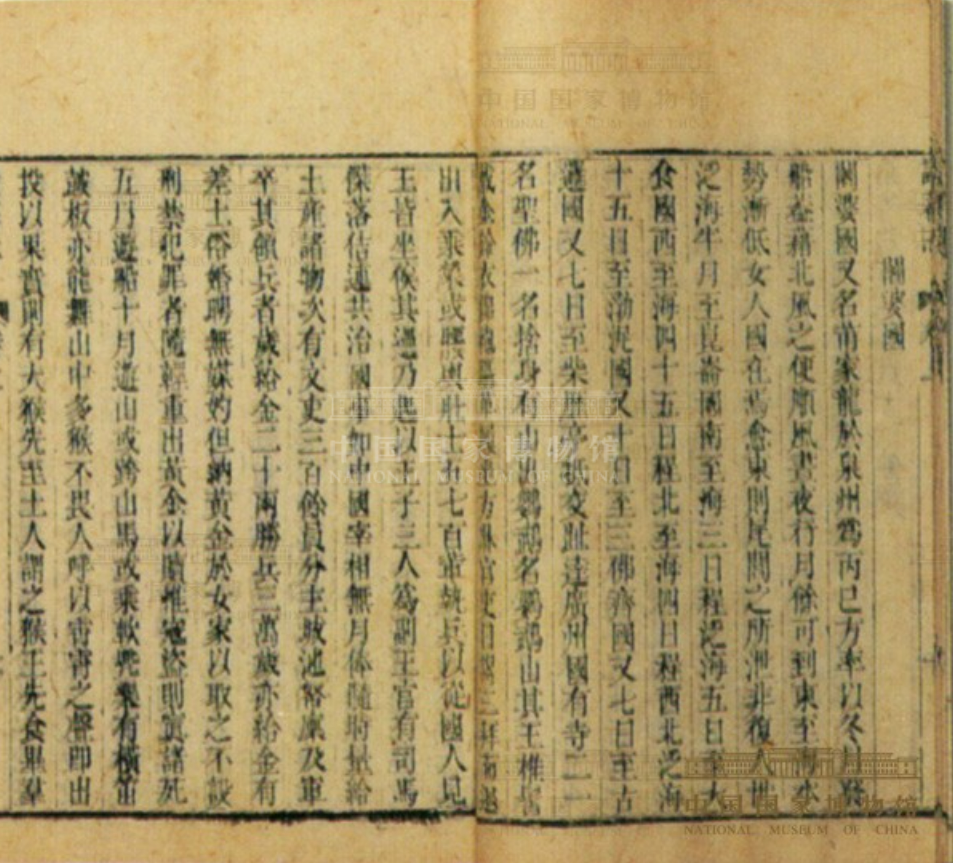 諸蕃志
闍婆國
闍婆國又名莆家龍於泉州為丙巳方率以冬月發
船蓋藉北風之便順風晝夜行月餘可到東至海水
勢漸低女人國在焉愈東則尾閭之所泄非復人世
泛海半月至崑崙國南至海三日程泛海五日至大
食國西至海四十五日程北至海四日程西北泛海
十五日至渤泥國又十日至三佛齊國又七日至古
邏國又七日至柴歷亭抵交趾達廣州國有寺二一
名聖佛一名捨身有山出鸚鵡名鸚鵡山其王椎髻
戴金鈴衣錦袍躡革履坐方床官吏日謁三拜而退
出入乘象或腰輿壯士五七百輩執兵以從國人見
王皆坐俟其過乃起以王子三人為副王官有司馬
傑落佶連共治國事如中國宰相無月俸隨時量給
土產諸物次有文吏三百餘員分主城池帑廩及軍
卒其領兵者歲給金二十兩勝兵三萬歲亦給金有
差土俗婚聘無媒妁但納黃金於女家以取之不設
刑禁犯罪者隨輕重出黃金以贖惟寇盜則寘諸死
五月遊船十月遊山或跨山馬或乘軟兜樂有橫笛
鼓板亦能舞山中多猴不畏人呼以霄霄之聲即出
投以果實則有大猴先至土人謂之猴王先食畢羣
中国国家博物馆
NATIONAL MUSEUM OF CHINA
中国国家博物馆
NATIONAL MUSEUM OF CHINA
中国国家博物馆
NATIONAL MUSEUM OF CHINA